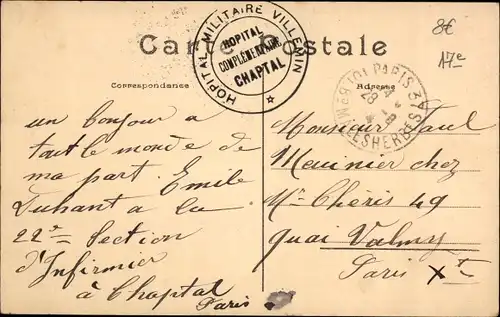 8€
17e
HOPITAL MILITAIRE VILLEMIN
HOPITAL
COMPLÉMENTAIRE
CHAPTAL
Carte Postale
Correspondance
Adresse
PARIS 37
MALESHERBES
28
un bonjour a
tout le monde de
ma part. Emile
Duhant a la
22e Section
d'Infirmier
à Chaptal
Paris
Monsieur Paul
Meunier chez
Mr Chéris 49
quai Valmy
Paris Xe